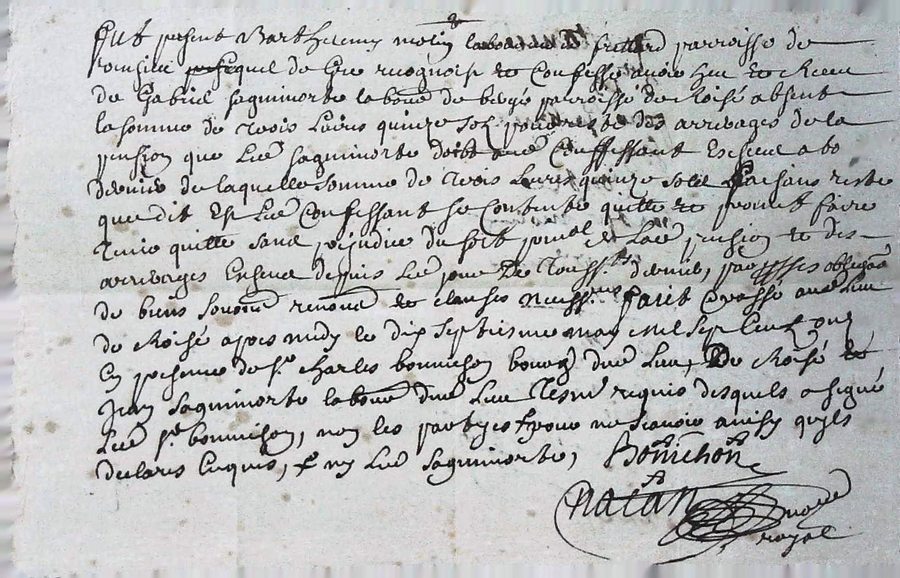 Fut present Barthelemy molin laboureur de frettard parroisse de
romsiere lequel de Gre recognoist et Confesse avoir heu et Receu
de Gabriel sagnimorte labour de bergé parroisse de Roisé absent
la somme de trois Livres quinze solz pour reste des arrerages de la
pension que Led sagnimorte doibt aud Confessant Escheue a la
derniere de laquelle somme de trois Livres quinze solz faisant reste
que dit Est Led Confessant se Contente quitte et promet faire
tenir quitte sans prejudice du sort poinal et lad pension et des
arrerages Escheus depuis Led jour de Touss.ts dernier, par obliga
de biens soumis renonce et clauses necess.res faict et passé aud Lieu
de Roisé apres midy le dix septiesme may mil sept Cent onze
En presence de s.r Charles bonnichon bourg dud Lieu, De Roisé et
Jean sagnimorte labour dud Lieu tesm requis desquels a signé
Led s.r bonnichon, non les partyes pour ne scavoir ainsy quils
declarés Enquis, ny Led sagnimorte,
Bonnichon
natan
no.re
royal